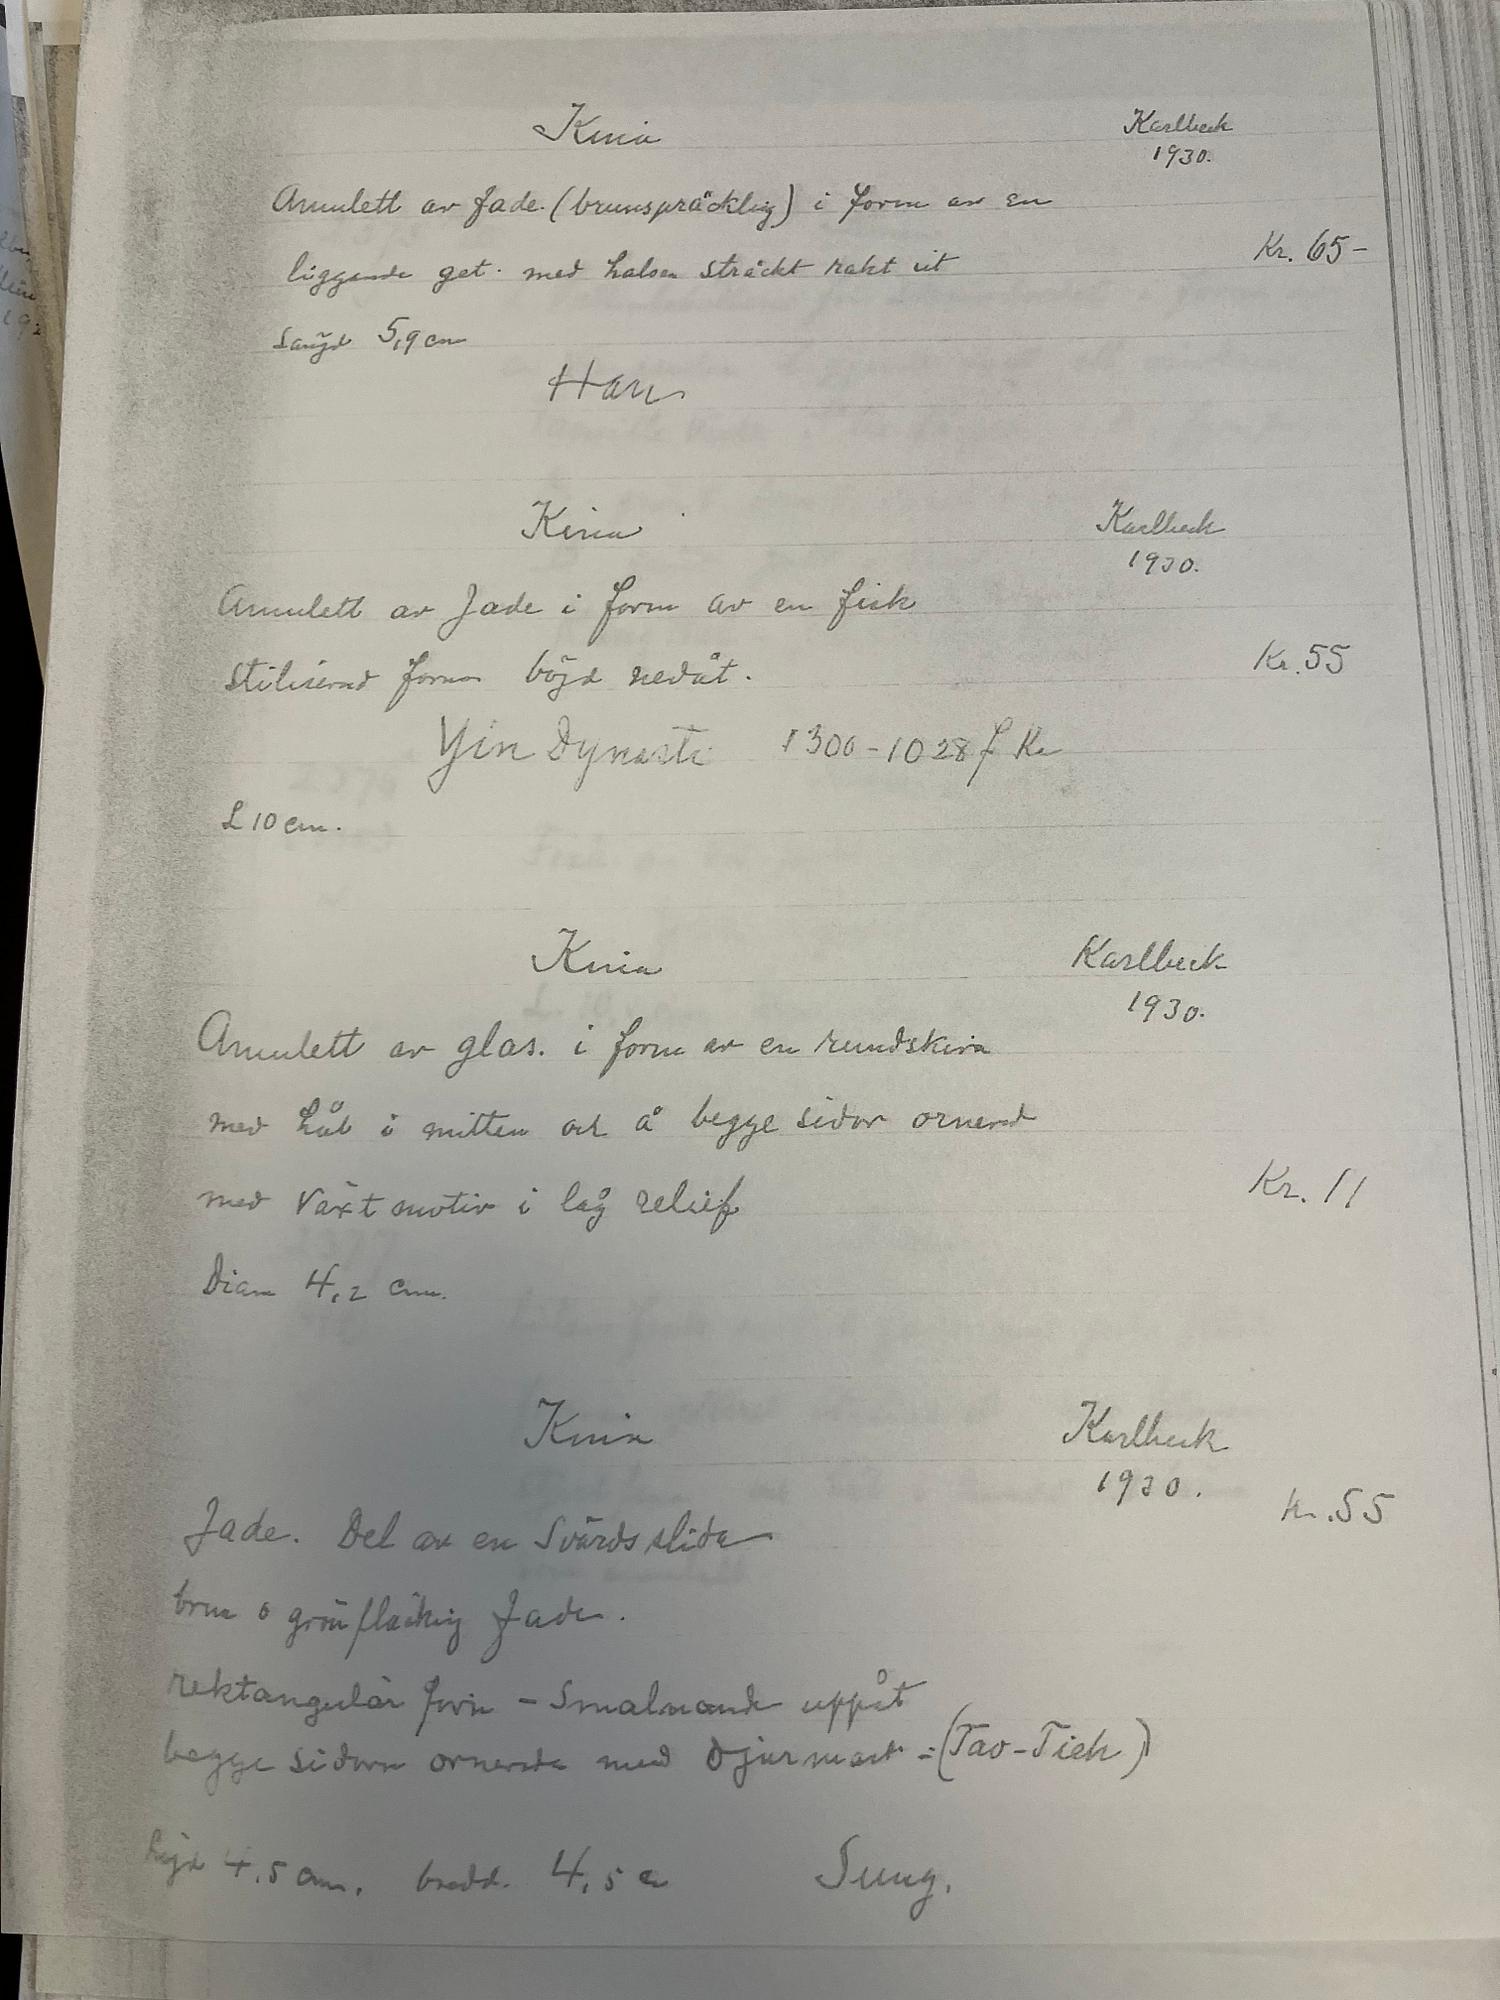 Kina Karlbeck
1930.
Amulett av Jade (brunspräcklig) i form av en
liggande get. med halsen sträckt rakt ut Kr. 65-
Längd 5,9 cm
Han
Kina Karlbeck
1930.
Amulett av Jade i form av en fisk
stiliserad form böjd nedåt. Kr. 55
Yin Dynasti 1300-1028 f Kr
L 10 cm.
Kina Karlbeck
1930.
Amulett av glas. i form av en rundskiva
med hål i mitten och å begge sidor ornerad
med växtmotiv i låg relief Kr. 11
Diam 4,2 cm.
Kina Karlbeck
1930. Kr. 55
Jade. Del av en Svärdsslida
brun o grönfläckig Jade.
rektangulär form - Smalnande uppåt
begge sidorna ornerade med Djurmask = (Tao-Tieh)
Höjd 4,5 cm. bredd. 4,5 c Sung.